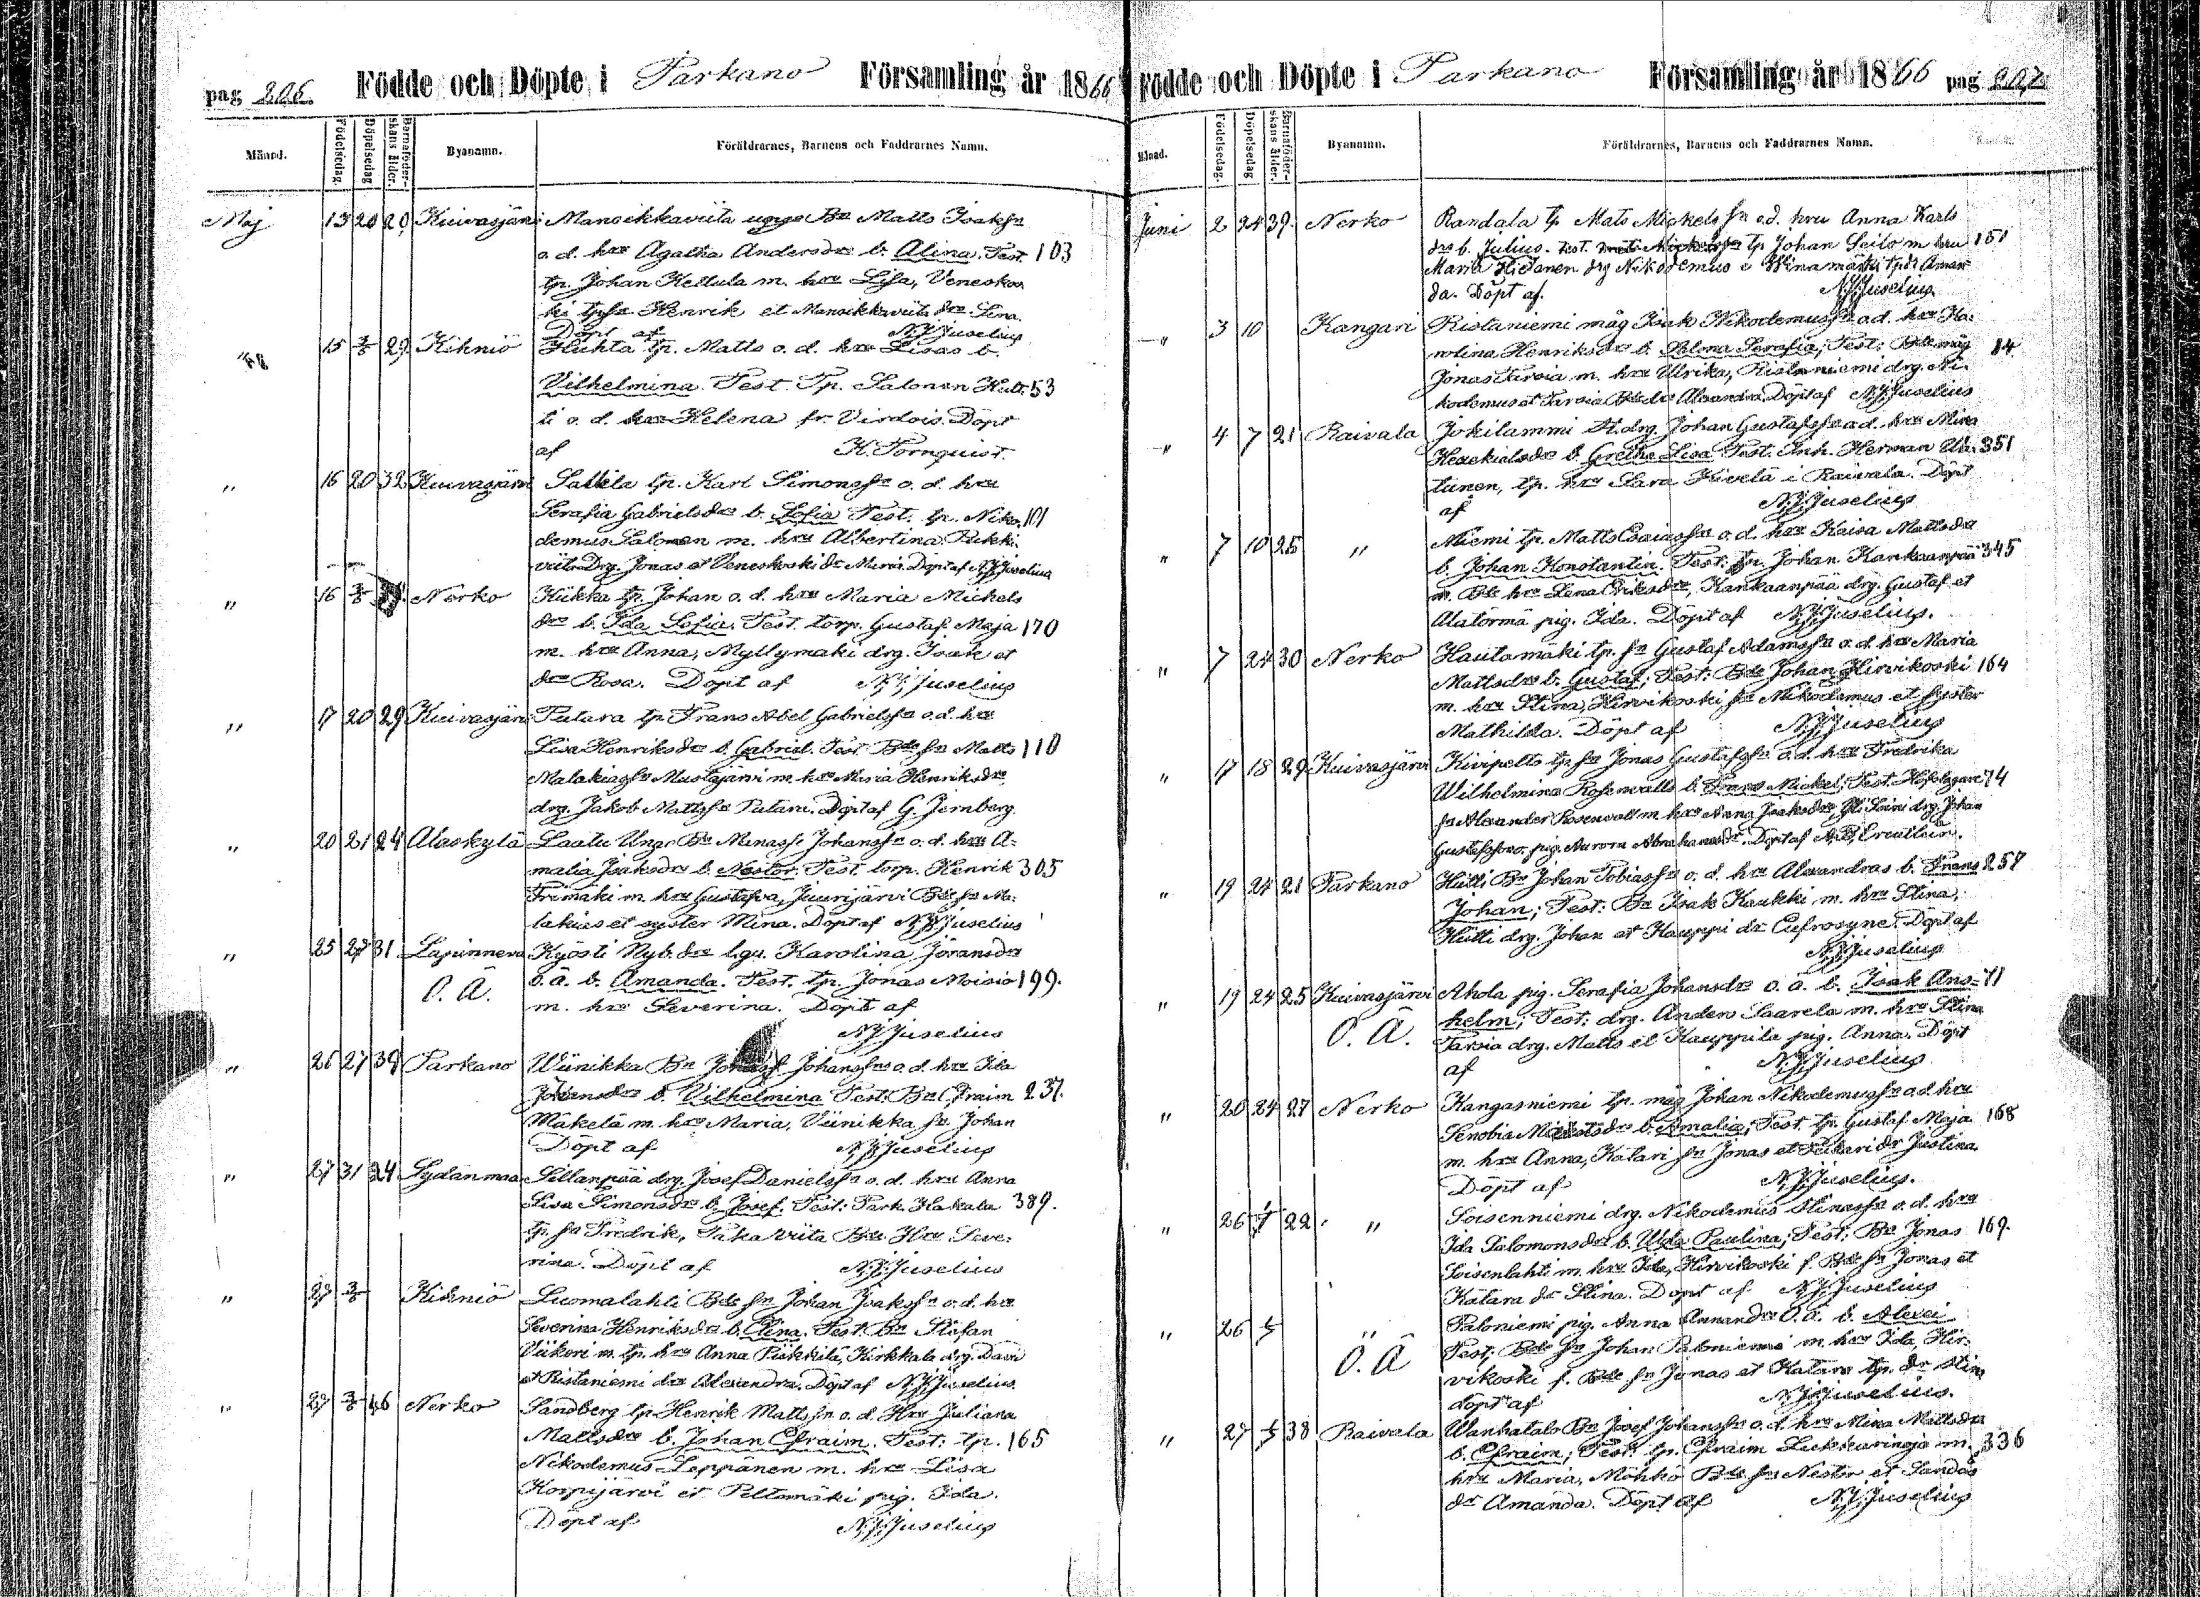 pag 206. Födde och Döpte i Parkano Församling år 1866
Månad. Födelsedag Döpelsedag Barnaföderskans ålder. Byanamn. Föräldrarnes, Barnens och Faddrarnes Namn.
Maj 13 20 29 Kuivasjärvi Mansikkaviita unge Bn Matts Isaksn
o. d. hru Agatha Andersdr b. Alina. Test. 103
tp. Johan Kellula m. hru Lisa, Venesko=
ki tpsn Henrik et Mansikkaviita dr Lina.
Döpt af N.J. Juselius
" 15 3/6 29 Kihniö Huhta tp. Matts o. d. hru Lisas b.
Vilhelmina. Test. Tp. Salonen Hult= 53
ti o. d. hru Helena fr. Virdois. Döpt
af K. Tornquist.
" 16 20 32 Kuivasjärvi Sallila tp. Karl Simonssn o. d. hru
Serafia Gabrielsdr b. Sofia Test. tp. Niko= 101
demus Salonen m. hru Albertina, Pukki=
viita Drg. Jonas et Veneskoski dr Maria. Döpt af N.J. Juselius
" 16 3/6 Nerko Kiikka tp. Johan o. d. hru Maria Michels
dr b. Ida Sofia. Test. torp. Gustaf Maja 170
m. hru Anna, Myllymäki drg. Isak et
dr Rosa. Döpt af N.J. Juselius
" 17 20 29 Kuivasjärvi Putara tp Frans Abel Gabrielssn o. d. hru
Lisa Henriksdr b. Gabriel. Test Bde sn Matts 110
Malakiassn Mustajärvi m. hru Maria Henriksdr
drg. Jakob Mattssn Putara. Döpt af G. Jernberg.
" 20 21 24 Alaskylä Laatu Unge Bn Manasse Johanssn o. d. hru A=
malia Isaksdr b. Nestor. Test. torp. Henrik 305
m. hru Gustafva, Juurijärvi Bde sn Ma=
lakias et syster Mina. Döpt af N.J. Juselius
" 25 27 31 Lapinneva Kyösti Nyb. dr lgu. Karolina Jöransdr
O. Ä. o. ä. b. Amanda. Test. tp. Jonas Moisio 199.
m. hru Severina. Döpt af
N.J. Juselius
" 26 27 39 Parkano Wiinikka Bn Johanssn o. d. hru Ida
Johansdr b. Vilhelmina Test: Bn Efraim 237.
Mäkelä m. hru Maria, Viinikka sn Johan
Döpt af N.J. Juselius
" 27 31 24 Sydänmaa Sillanpää drg. Josef Danielssn o. d. hru Anna
Lisa Simonsdr b. Josef. Test: Park. Hakala 389.
tp. sn Fredrik, Takaviita Bde Hru Seve=
rina. Döpt af N.J. Juselius
" 27 3/6 Kihniö Luomalahti Bde sn Johan Isakssn o. d. hru
Severina Henriksdr b. Elina. Test. Bn Stefan
Viikeri m. tp. hru Anna Piäkkilä, Kirkkala drg. Davi
et Ristaniemi dr Alexandra. Döpt af N.J. Juselius.
" 27 3/6 46 Nerko Sandberg tp Henrik Mattssn o. d. Hru Juliana
Mattsdr b. Johan Efraim. Test: tp. 165
Nikodemus Leppänen m. hru Lisa
Korpijärvi et Peltomäki pig. Ida.
Döpt af N.J. Juselius
Födde och Döpte i Parkano Församling år 1866 pag 207.
Månad. Födelsedag. Döpelsedag Barnaföderskans ålder. Byanamn. Föräldrarnes, Barnens och Faddrarnes Namn.
Juni 2 24 39. Nerko Randala tp Mats Mickelssn o. d. hru Anna Karls
dr b. Julius. Test. tp Johan Seilo m hru 151
Maria Hietanen drg Nikodemus e Winamäki tpdr Aman
da. Döpt af. N.J. Juselius
" 3 10 Kangari Ristaniemi måg Isak Nikodemussn o. d. hru Ka=
rolina Henriksdr b. Selma Serafia; Test: Bde måg 84
Jonas Tarsia m. hru Ulrika, Ristaniemi drg. Ni=
kodemus et Tarsia Bde dr Alexandra. Döpt af N.J. Juselius
" 4 7 21 Raivala Jokilammi St. drg. Johan Gustafssn o. d. hru Mina
Hesekielsdr b. Gretha Lisa Test. Inh. Herman Ula= 351
tiinen, tp. hru Sara Kivelä i Raivala. Döpt
af N.J. Juselius
" 7 10 25 " Niemi tp. Matts Esaiassn o. d. hru Kaisa Mattsdr
b. Johan Konstantin. Test: tp. Johan Kankaanpää 345
m. Bde hru Lena Eriksdr, Kankaanpää drg. Gustaf et
Alatörmä pig. Ida. Döpt af N.J. Juselius.
" 7 24 30 Nerko Hautamäki tp. sn Gustaf Adamssn o. d. hru Maria
Mattsdr b. Gustaf; Test: Bde Johan Hirvikoski 164
m. hru Stina, Hirvikoski sn Nikodemus et syster
Mathilda. Döpt af N.J. Juselius
" 17 18 29 Kuivasjärvi Kivipelto tp. sn Jonas Gustafssn o. d. hru Fredrika
Wilhelmina Rosenvalls b. Frans Mickel; Test. 74
sn Alexander Rosenvall m hru Anna Isaksdr, drg. Johan
Gustafsson o. pig. Aurora Abrahamsdr. Döpt af
" 19 24 21 Parkano Hütti Bn Johan Tobiassn o. d. hru Alexandras b. Frans 257
Johan; Test: Bn Isak Kaukki m. hru Stina,
Hütti drg. Johan et Kauppi dr Eufrosyne. Döpt af
N.J. Juselius
" 19 24 25 Kuivasjärvi Ahola pig. Serafia Johansdr o. ä. b. Isak Ans= 71
O. Ä. helm; Test: drg. Anders Saarela m. hru Stina
Tarsia drg. Matts et Kauppila pig. Anna. Döpt
af N.J. Juselius
" 20 24 27 Nerko Kangasniemi tp. måg Johan Nikodemussn o. d. hru
Senobia b. Amalia; Test. tp. Gustaf Maja 168
m. hru Anna, Kätari sn Jonas et dr Justina.
Döpt af N.J. Juselius.
" 26 1/7 22. " Soisenniemi drg. Nikodemus o. d. hru
Ida Salomonsdr b. Ulda Paulina; Test: Bn Jonas 169.
Soisenlahti m. hru Ida, Hirvikoski f. Bde sn Jonas et
Kätara dr Stina. Döpt af N.J. Juselius
" 26 1/7 " Paloniemi pig. Anna Annandr O. ä. b. Alexei
O. Ä Test: Bde sn Johan Paloniemi m. hru Ida, Hir=
vikoski f. Bde sn Jonas et Katara tp. dr Stina
döpt af N.J. Juselius.
" 27 1/7 38 Raivala Wanhatalo Bn Josef Johanssn o. d. hru Mina Mattsdr
b. Efraim; Test. tp. Efraim Lukkarinoja m. 336
hru Maria, Möhkö Bde sn Nestor et Sandås
dr Amanda. Döpt af N.J. Juselius